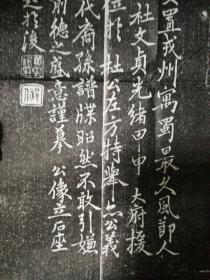 置戎州寓蜀最久風節人
杜文貞光緒甲申 大府援
位於 杜公左方特舉亦公義
代裔孫譜牒昭然不敢引嫌
前德之盛意謹摹 公像立石座
於後